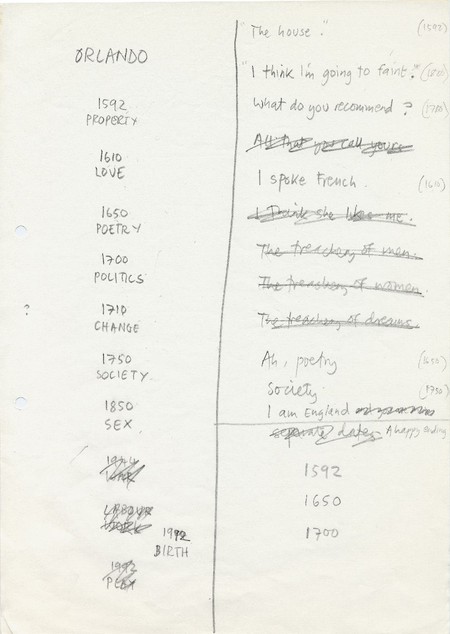 ORLANDO
1592
PROPERTY
1610
LOVE
1650
POETRY
1700
POLITICS
?
1710
CHANGE
1750
SOCIETY
1850
SEX
LABOUR
1992
BIRTH
1992
PLAY
"The house." (1592)
"I think I'm going to faint."
What do you recommend? (1700)
All that you call yours
I spoke French. (1610)
I think she likes me.
The treachery of men.
The treachery of women.
The treachery of dreams.
Ah, poetry (1650)
Society. (1750)
I am England
separate dates A happy ending
1592
1650
1700